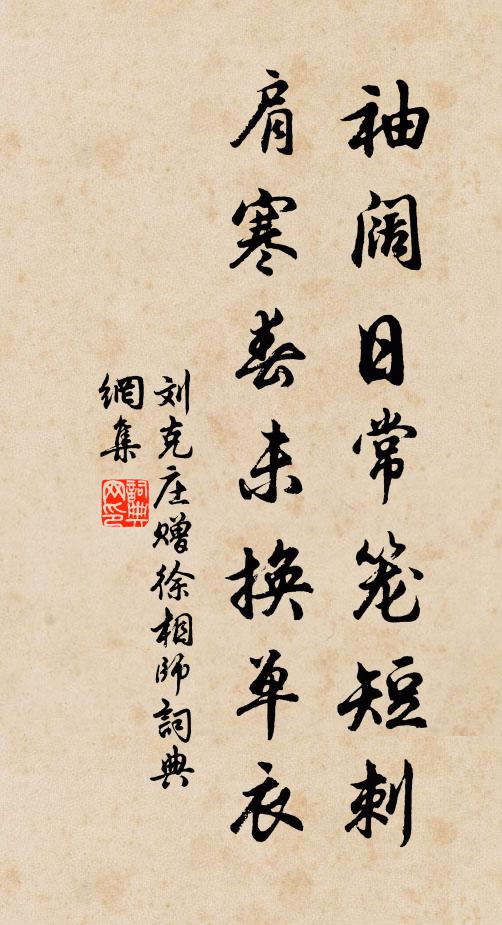 袖阔日常笼短刺
肩寒春未换单衣
刘克庄赠徐相师词典
網集
詞典
网印